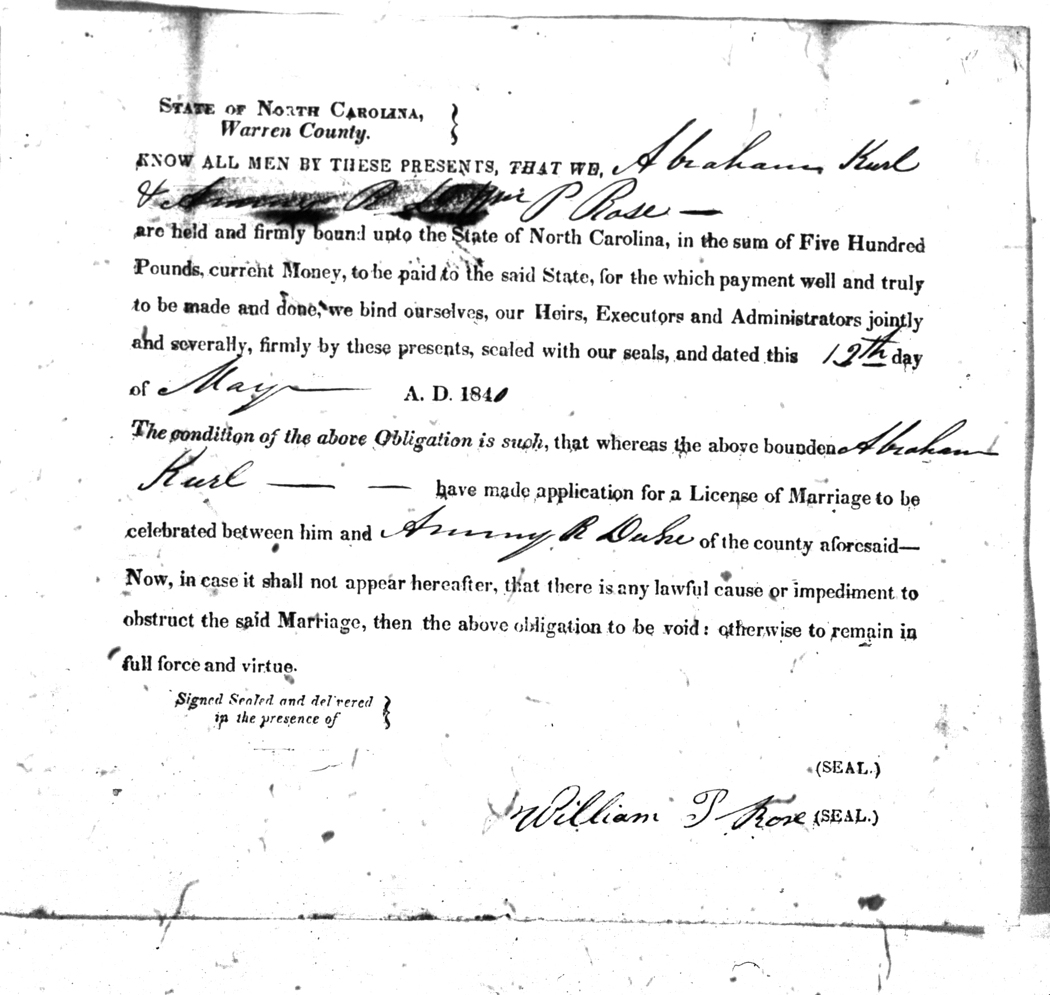 STATE OF NORTH CAROLINA,
Warren County.
KNOW ALL MEN BY THESE PRESENTS, THAT WE, Abraham Kurl
& Wm P Rose —
are held and firmly bound unto the State of North Carolina, in the sum of Five Hundred
Pounds, current Money, to be paid to the said State, for the which payment well and truly
to be made and done, we bind ourselves, our Heirs, Executors and Administrators jointly
and severally, firmly by these presents, sealed with our seals, and dated this 12th day
of May — A. D. 1840
The condition of the above Obligation is such, that whereas the above bounden Abraham
Kurl — — have made application for a License of Marriage to be
celebrated between him and Ammy R Duke of the county aforesaid—
Now, in case it shall not appear hereafter, that there is any lawful cause or impediment to
obstruct the said Marriage, then the above obligation to be void: otherwise to remain in
full force and virtue.
Signed Sealed and delivered
in the presence of
(SEAL.)
William P Rose (SEAL.)